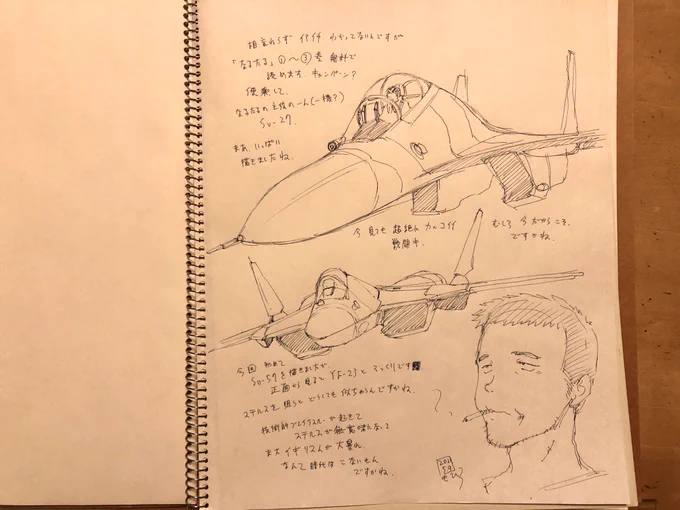 相変わらず 仕組 わかってないんですが
「なるたる」①〜③巻 無料で
読めます。キャンペーン?
便乗して、
なるたるの主役の一人(一機?)
Su-27
まあ、いっぱい
描きましたね。
今見ても 超絶にカッコイイ
戦闘キ。
むしろ 今だからこそ、
ですかね。
今回 初めて
Su-57を描きましたが
正面から見ると YF-23と そっくりです
ステルスを狙うと どうしても似ちゃうんですかね。
技術的ブレイクスルーが起きて
ステルスが無意味になって
また イギリスんが 大暴れ
なんて 時代は こないもん
ですかね。